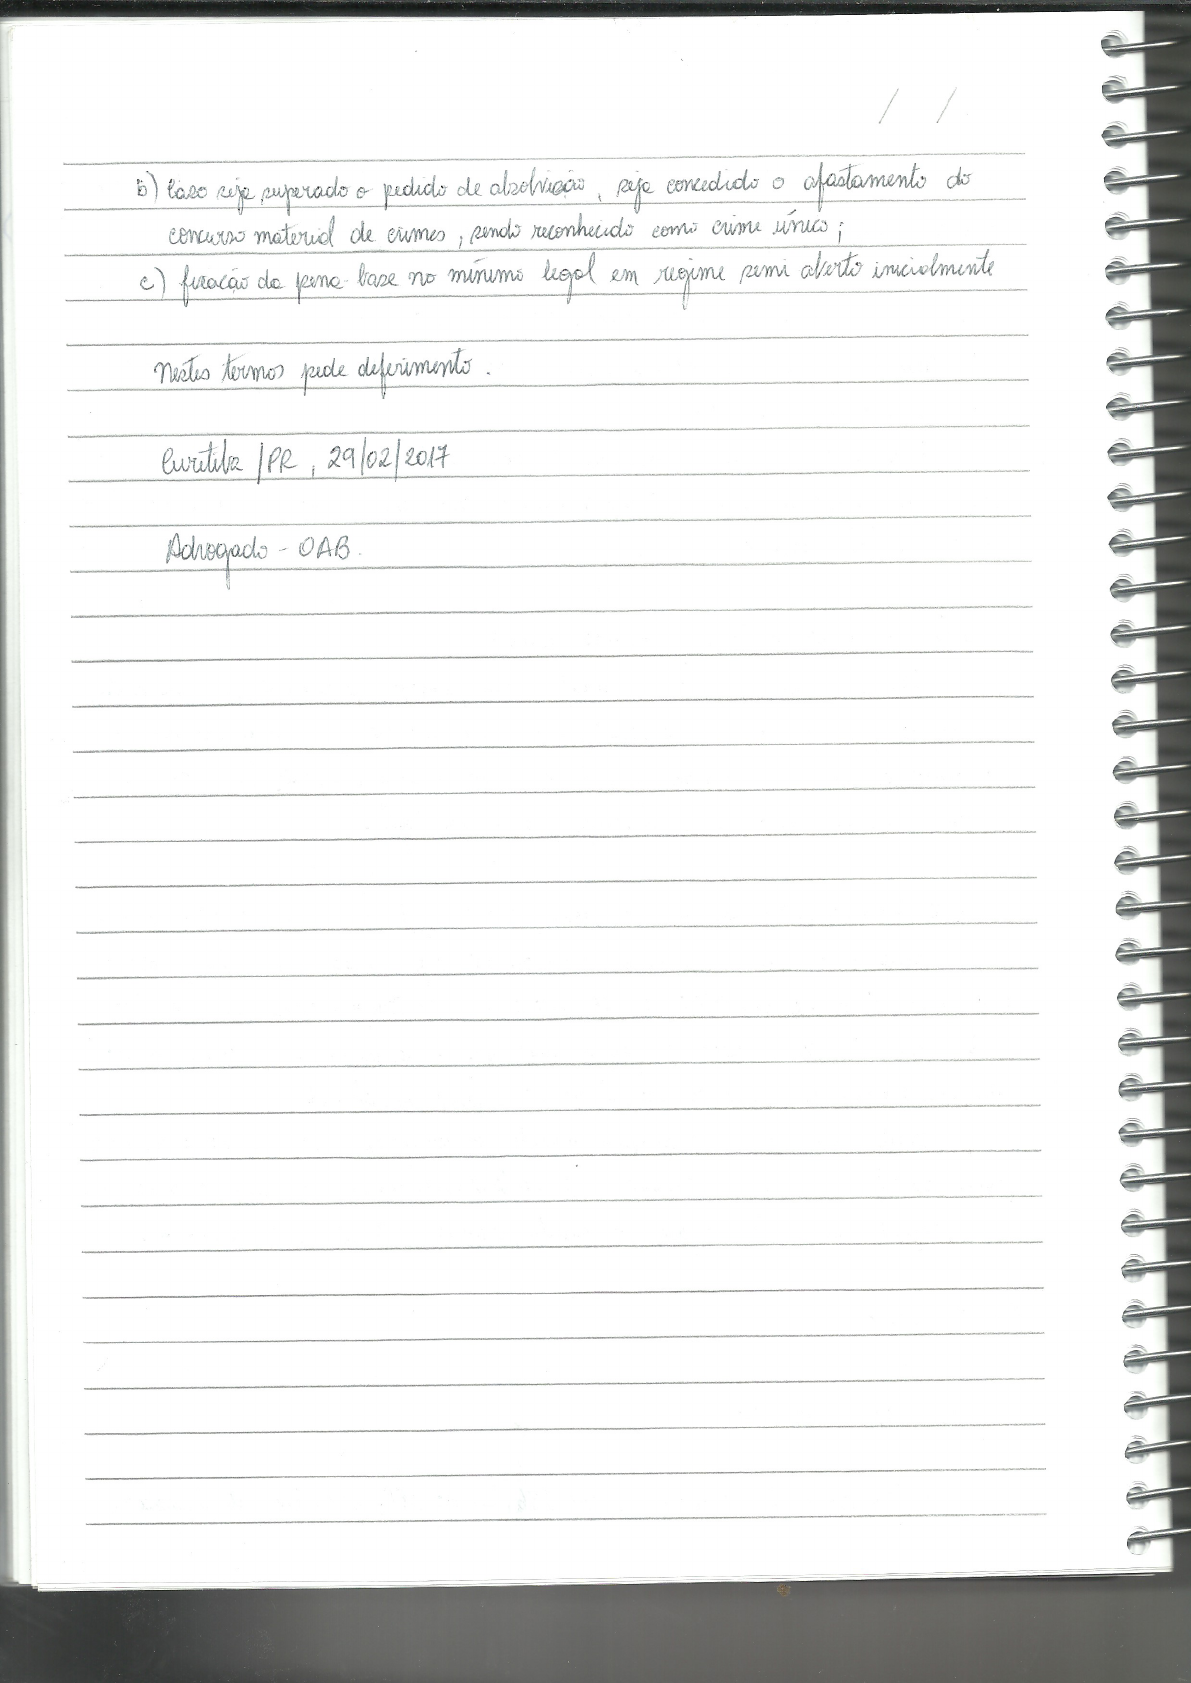 / /
b) Caso seja superado o pedido de absolvição, seja concedido o afastamento do
concurso material de crimes, sendo reconhecido como crime único;
c) fixação da pena-base no mínimo legal em regime semi aberto inicialmente
Nestes termos pede deferimento.
Curitiba/PR, 29/02/2017
Advogado - OAB.